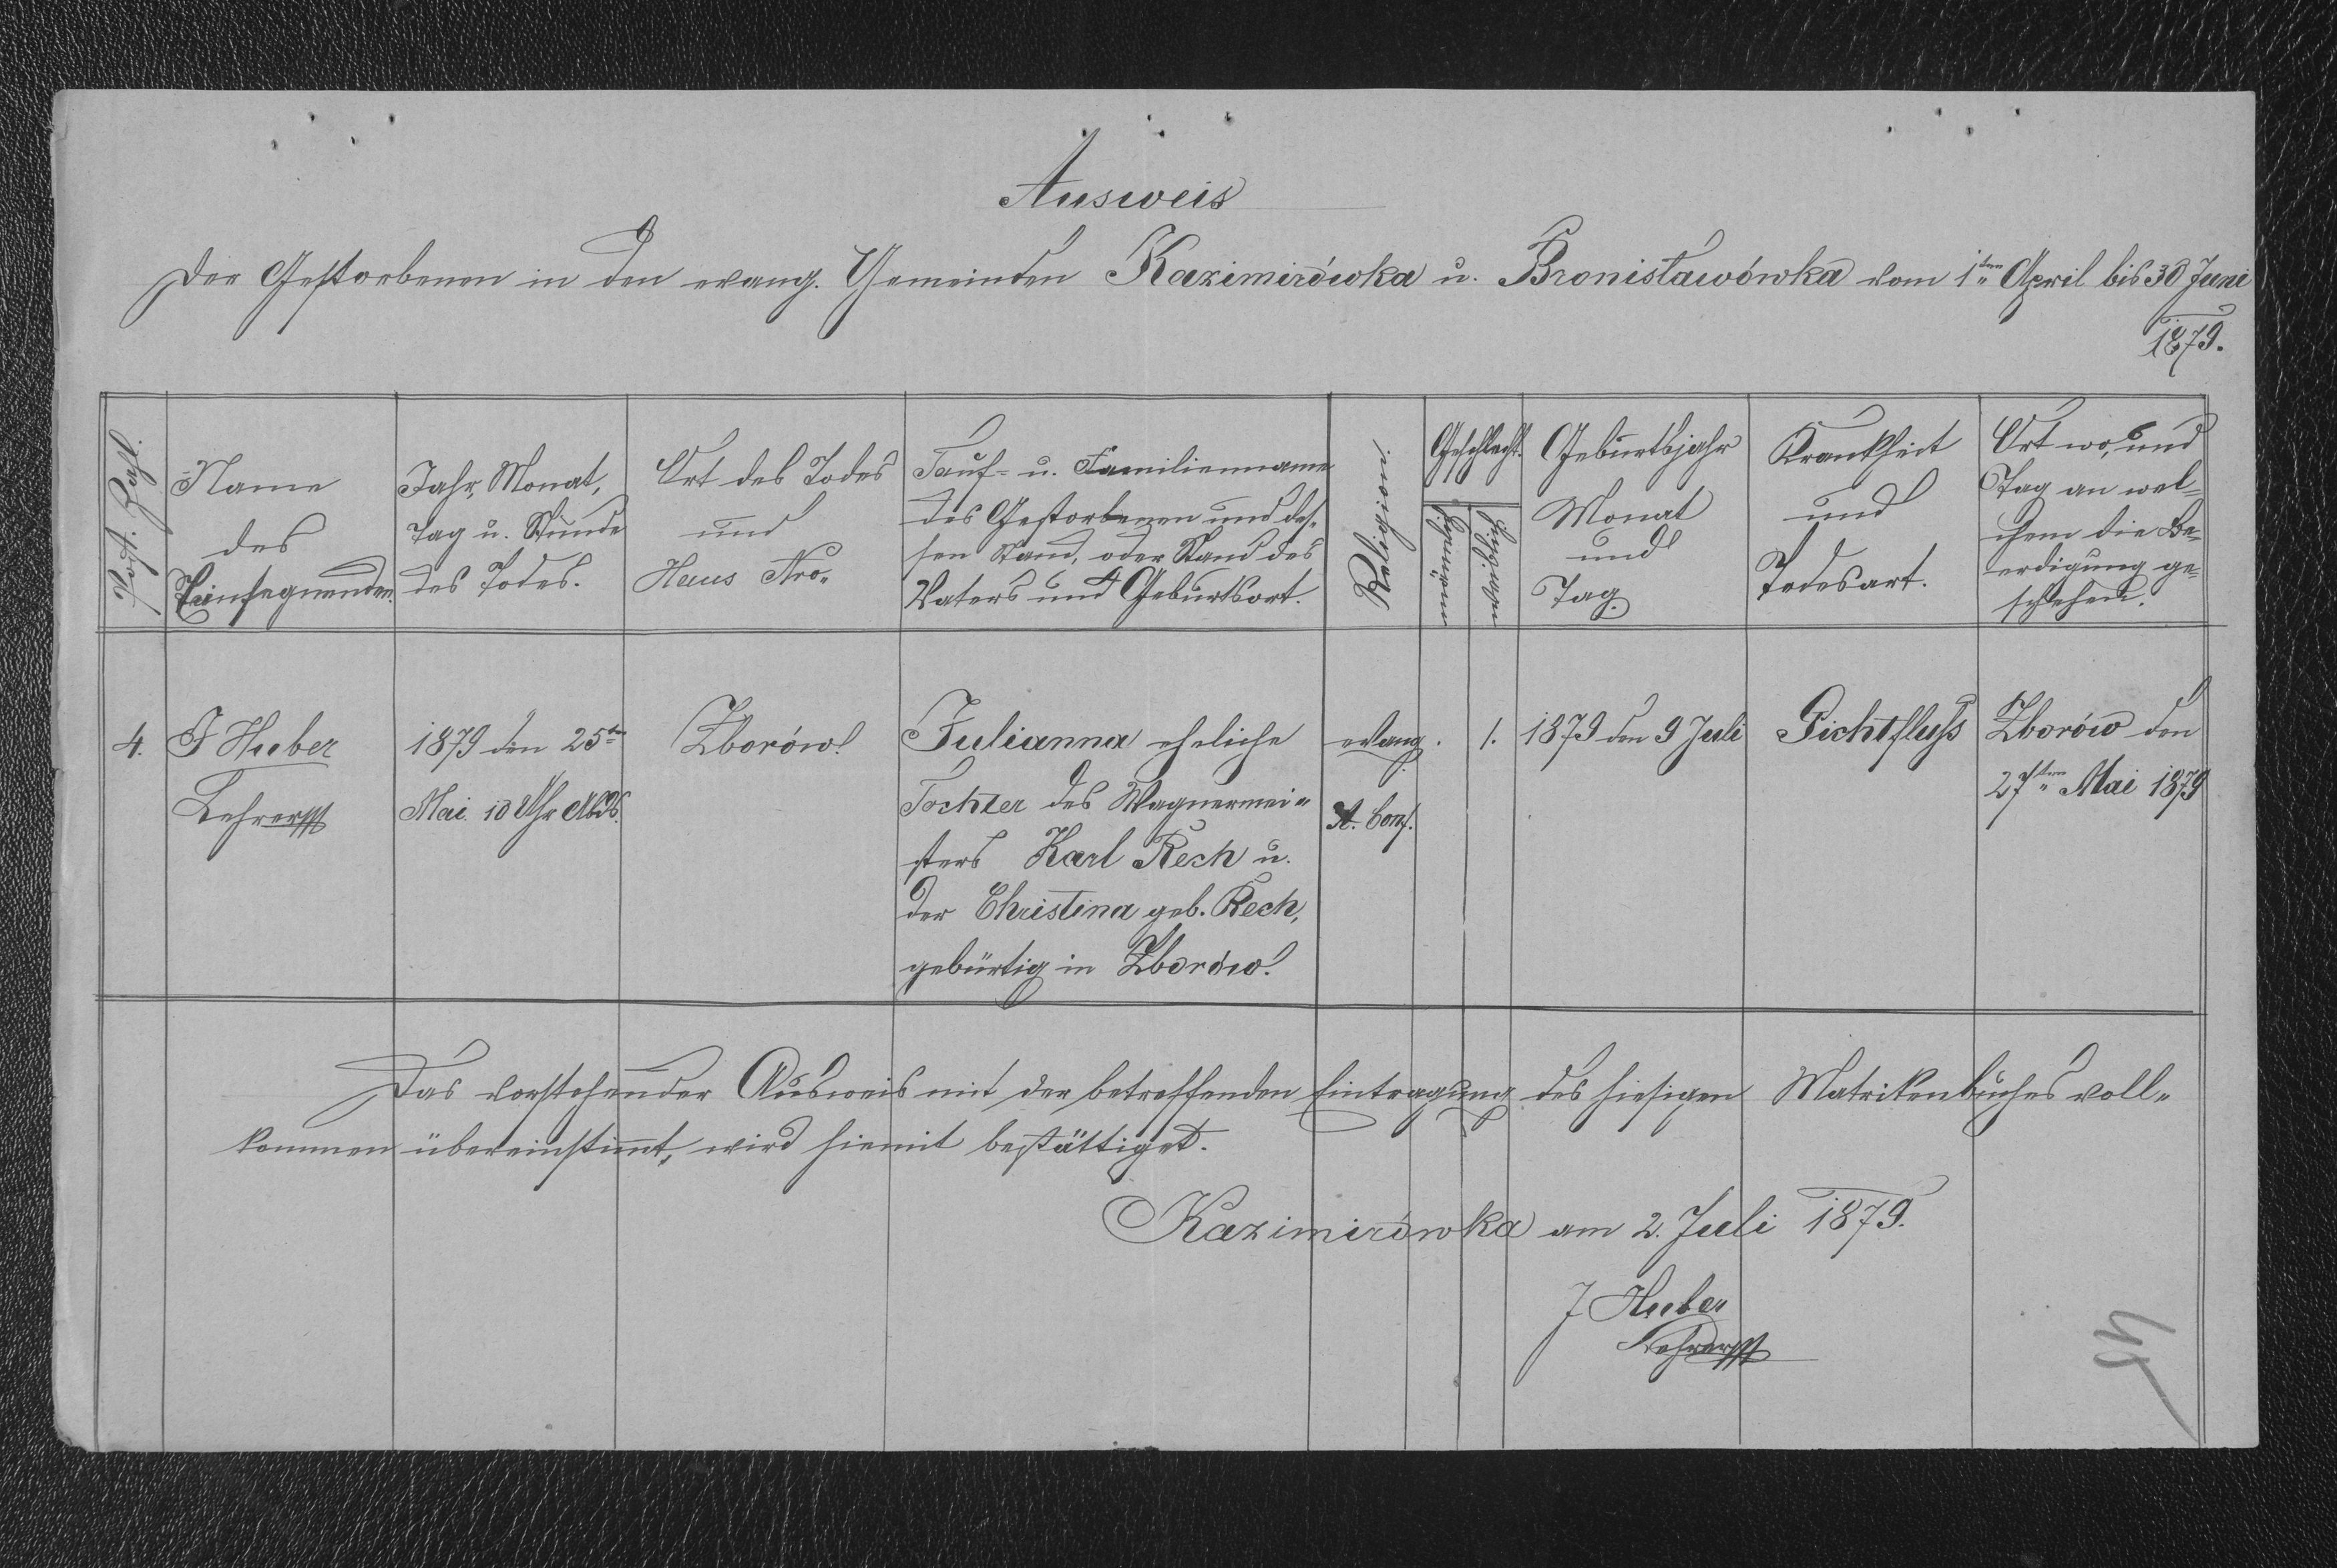 Ausweis
der Gestorbenen in den evang. Gemeinden Kazimirówka u. Bronisławówka vom 1ten April bis 30 Juni
1879.
Post. Zahl.
Name
des
Einsegnenden.
Jahr, Monat,
Tag u. Stunde
des Todes.
Ort des Todes
und
Haus Nro.
Tauf- u. Familienname
des Gestorbenen und des-
sen Stand, oder Stand des
Vaters und Geburtsort.
Religion.
Geschlecht.
männlich
weiblich
Geburtsjahr
Monat
und
Tag.
Krankheit
und
Todesart.
Ort wo, und
Tag an wel-
chem die Be-
erdigung ge-
schehen.
4.
J Huber
Lehrer
1879 den 25ten
Mai 10 Uhr Abds.
Zborów
Julianna eheliche
Tochter des Wagnermei-
sters Karl Rech u.
der Christina geb. Rech,
gebürtig in Zborów
evang.
A. Conf.
1.
1879 den 9 Juli
Gichtfluss
Zborów den
27ten Mai 1879
Das vorstehender Ausweis mit der betreffenden Eintragung des hiesigen Matrikenbuches voll-
kommen übereinstimmt, wird hiemit bestättiget.
Kazimirówka am 2. Juli 1879.
J Huber
Lehrer